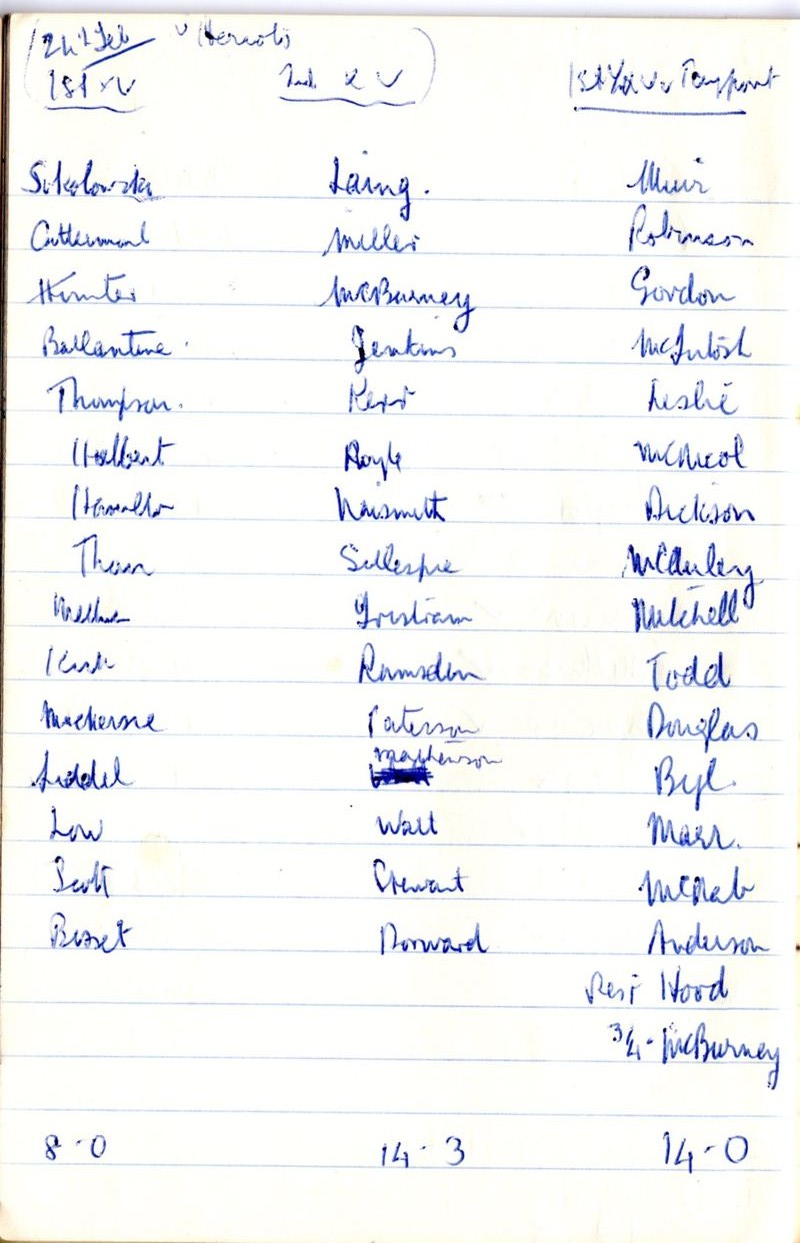 24th Feb v Heriots
1st XV 2nd XV 1st XV v. Tayport
Sokolowski Laing. Muir
Miller Robinson
Hunter McBurney Gordon
Ballantine Jenkins McIntosh
Thompson. Kerr Leslie
Halbert Royle McNicol
Hamilton Naismith Dickson
Thom Gillespie McAuley
Tristram Mitchell
Kirk Ramsden Todd
Mackenzie Paterson Douglas
Liddel Mathewson Byl.
Low Watt Marr.
Scott Stewart McNab
Bisset Dorward Anderson
Res: Hood
3/4 - McBurney
8-0 14-3 14-0